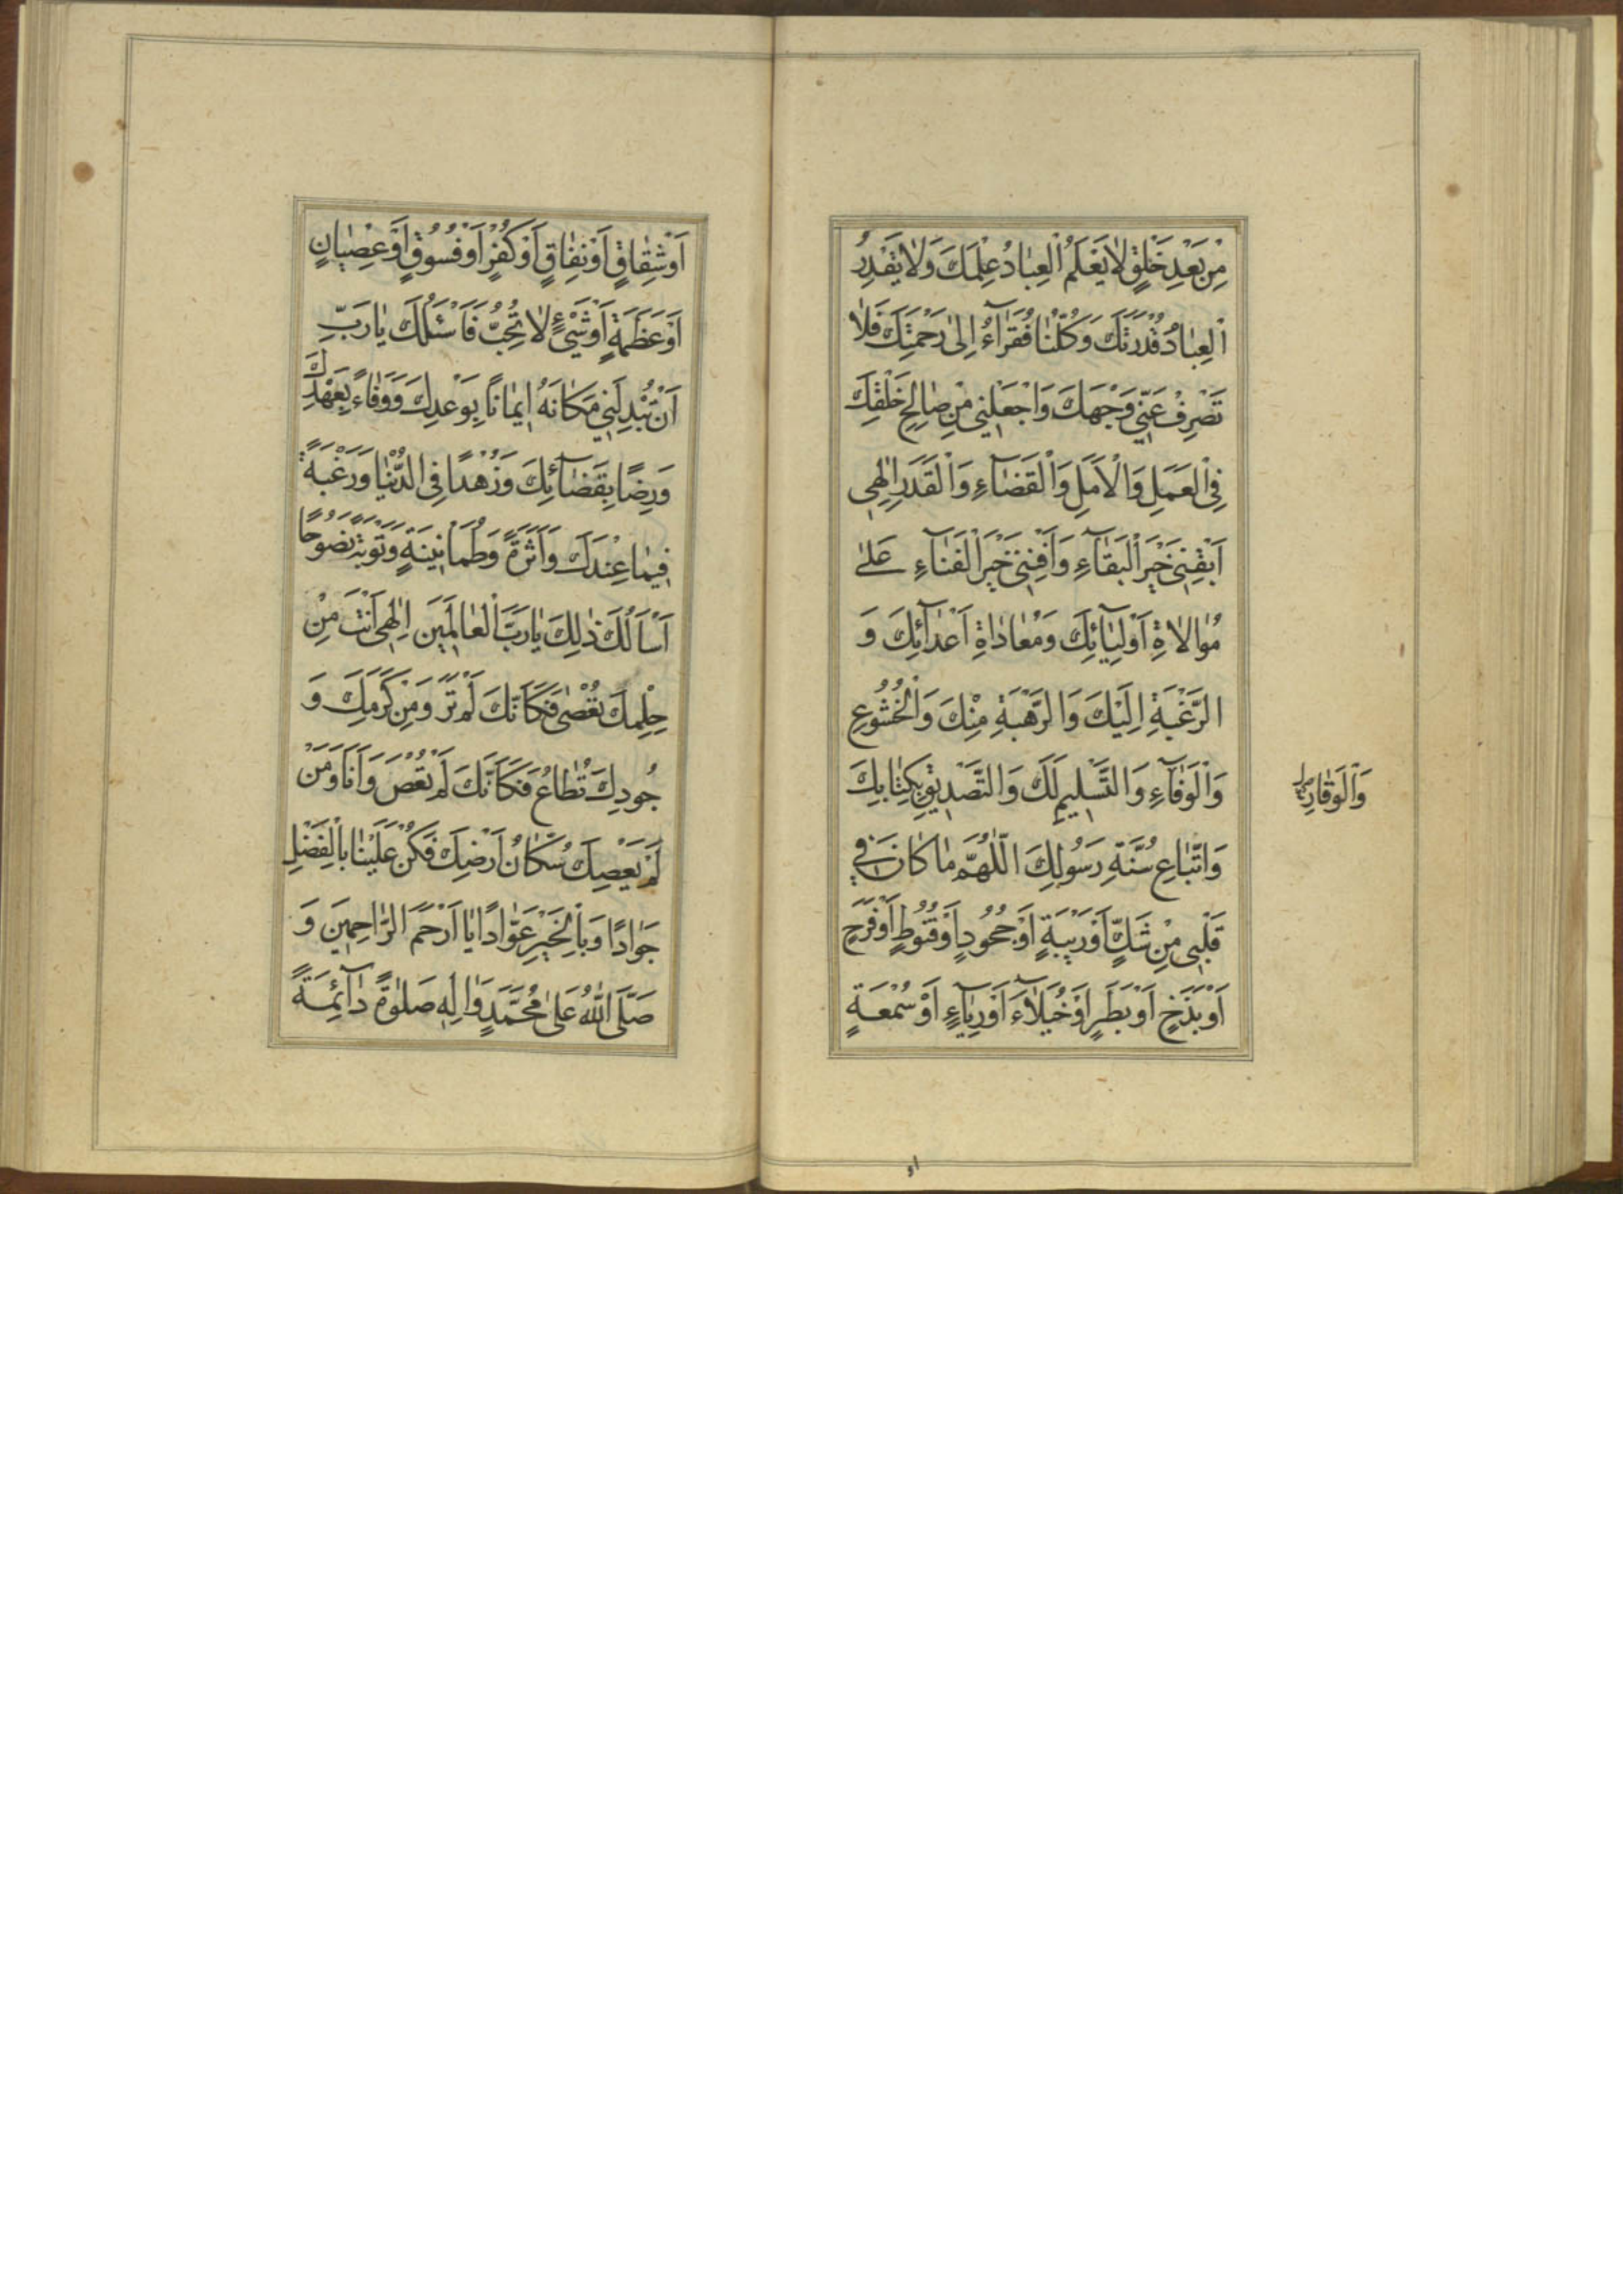 مِنْ بَعْدِ خَلْقٍ لَا يَعْلَمُ الْعِبَادُ عِلْمَكَ وَلَا يَقْدِرُ
الْعِبَادُ قُدْرَتَكَ وَكُلُّنَا فُقَرَآءُ اِلىٰ رَحْمَتِكَ فَلَا
تَصْرِفْ عَنّي وَجْهَكَ وَاجْعَلْنِي مِنْ صَالِحِ خَلْقِكَ
فِي الْعَمَلِ وَالْاَمَلِ وَالْقَضَآءِ وَالْقَدَرِ اِلٰهِي
اَبْقِنِي خَيْرَ الْبَقَآءِ وَاَفْنِنِي خَيْرَ الْفَنَآءِ عَلىٰ
مُوَالَاةِ اَوْلِيَآئِكَ وَمُعَادَاةِ اَعْدَآئِكَ وَ
الرَّغْبَةِ اِلَيْكَ وَالرَّهْبَةِ مِنْكَ وَالْخُشُوعِ
وَالْوَفَآءِ وَالتَّسْلِيمِ لَكَ وَالتَّصْدِيقِ بِكِتَابِكَ
وَالْوَقَارِ
وَاتِّبَاعِ سُنَّةِ رَسُولِكَ اَللّٰهُمَّ مَا كَانَ فِي
قَلْبِي مِنْ شَكٍّ اَوْ رَيْبَةٍ اَوْ جُحُودٍ اَوْ قُنُوطٍ اَوْ فَرَحٍ
اَوْ بَذَخٍ اَوْ بَطَرٍ اَوْ خُيَلَآءَ اَوْ رِيَآءٍ اَوْ سُمْعَةٍ
او
اَوْ شِقَاقٍ اَوْ نِفَاقٍ اَوْ كُفْرٍ اَوْ فُسُوقٍ اَوْ عِصْيَانٍ
اَوْ عَظَمَةٍ اَوْ شَيْءٍ لَا تُحِبُّ فَاَسْئَلُكَ يَا رَبِّ
اَنْ تُبْدِلَنِي مَكَانَهُ اِيمَانًا بِوَعْدِكَ وَوَفَاءً بِعَهْدِكَ
وَرِضًا بِقَضَآئِكَ وَزُهْدًا فِي الدُّنْيَا وَرَغْبَةً
فِيمَا عِنْدَكَ وَاَثَرَةً وَطُمَاْنِينَةً وَتَوْبَةً نَصُوحًا
اَسْاَلُكَ ذٰلِكَ يَا رَبَّ الْعَالَمِينَ اِلٰهِي اَنْتَ مِنْ
حِلْمِكَ تُعْصٰى فَكَاَنَّكَ لَمْ تَرَ وَمِنْ كَرَمِكَ وَ
جُودِكَ تُطَاعُ فَكَاَنَّكَ لَمْ تُعْصَ وَاَنَا وَمَنْ
لَمْ يَعْصِكَ سُكَّانُ اَرْضِكَ فَكُنْ عَلَيْنَا بِالْفَضْلِ
جَوَادًا وَبِالْخَيْرِ عَوَّادًا يَا اَرْحَمَ الرَّاحِمِينَ وَ
صَلَّى اللّٰهُ عَلىٰ مُحَمَّدٍ وَاٰلِهِ صَلٰوةً دَآئِمَةً